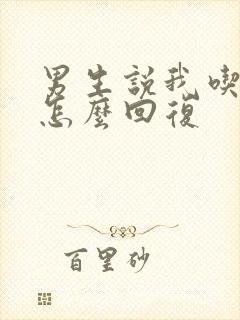 男生説我喫
怎麼回復
百里砂